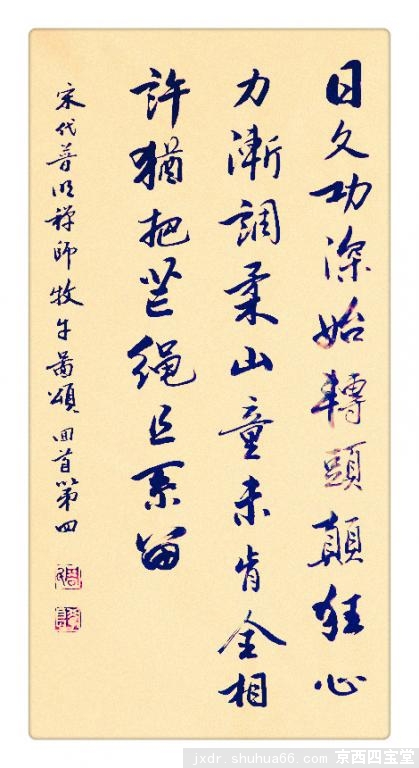 日久功深始轉頭顛狂心
力漸調柔山童未肯全相
許猶把芒绳且系留
宋代普明禅師牧牛图頌回首第四
jxdr.shuhua66.com 京西四宝堂